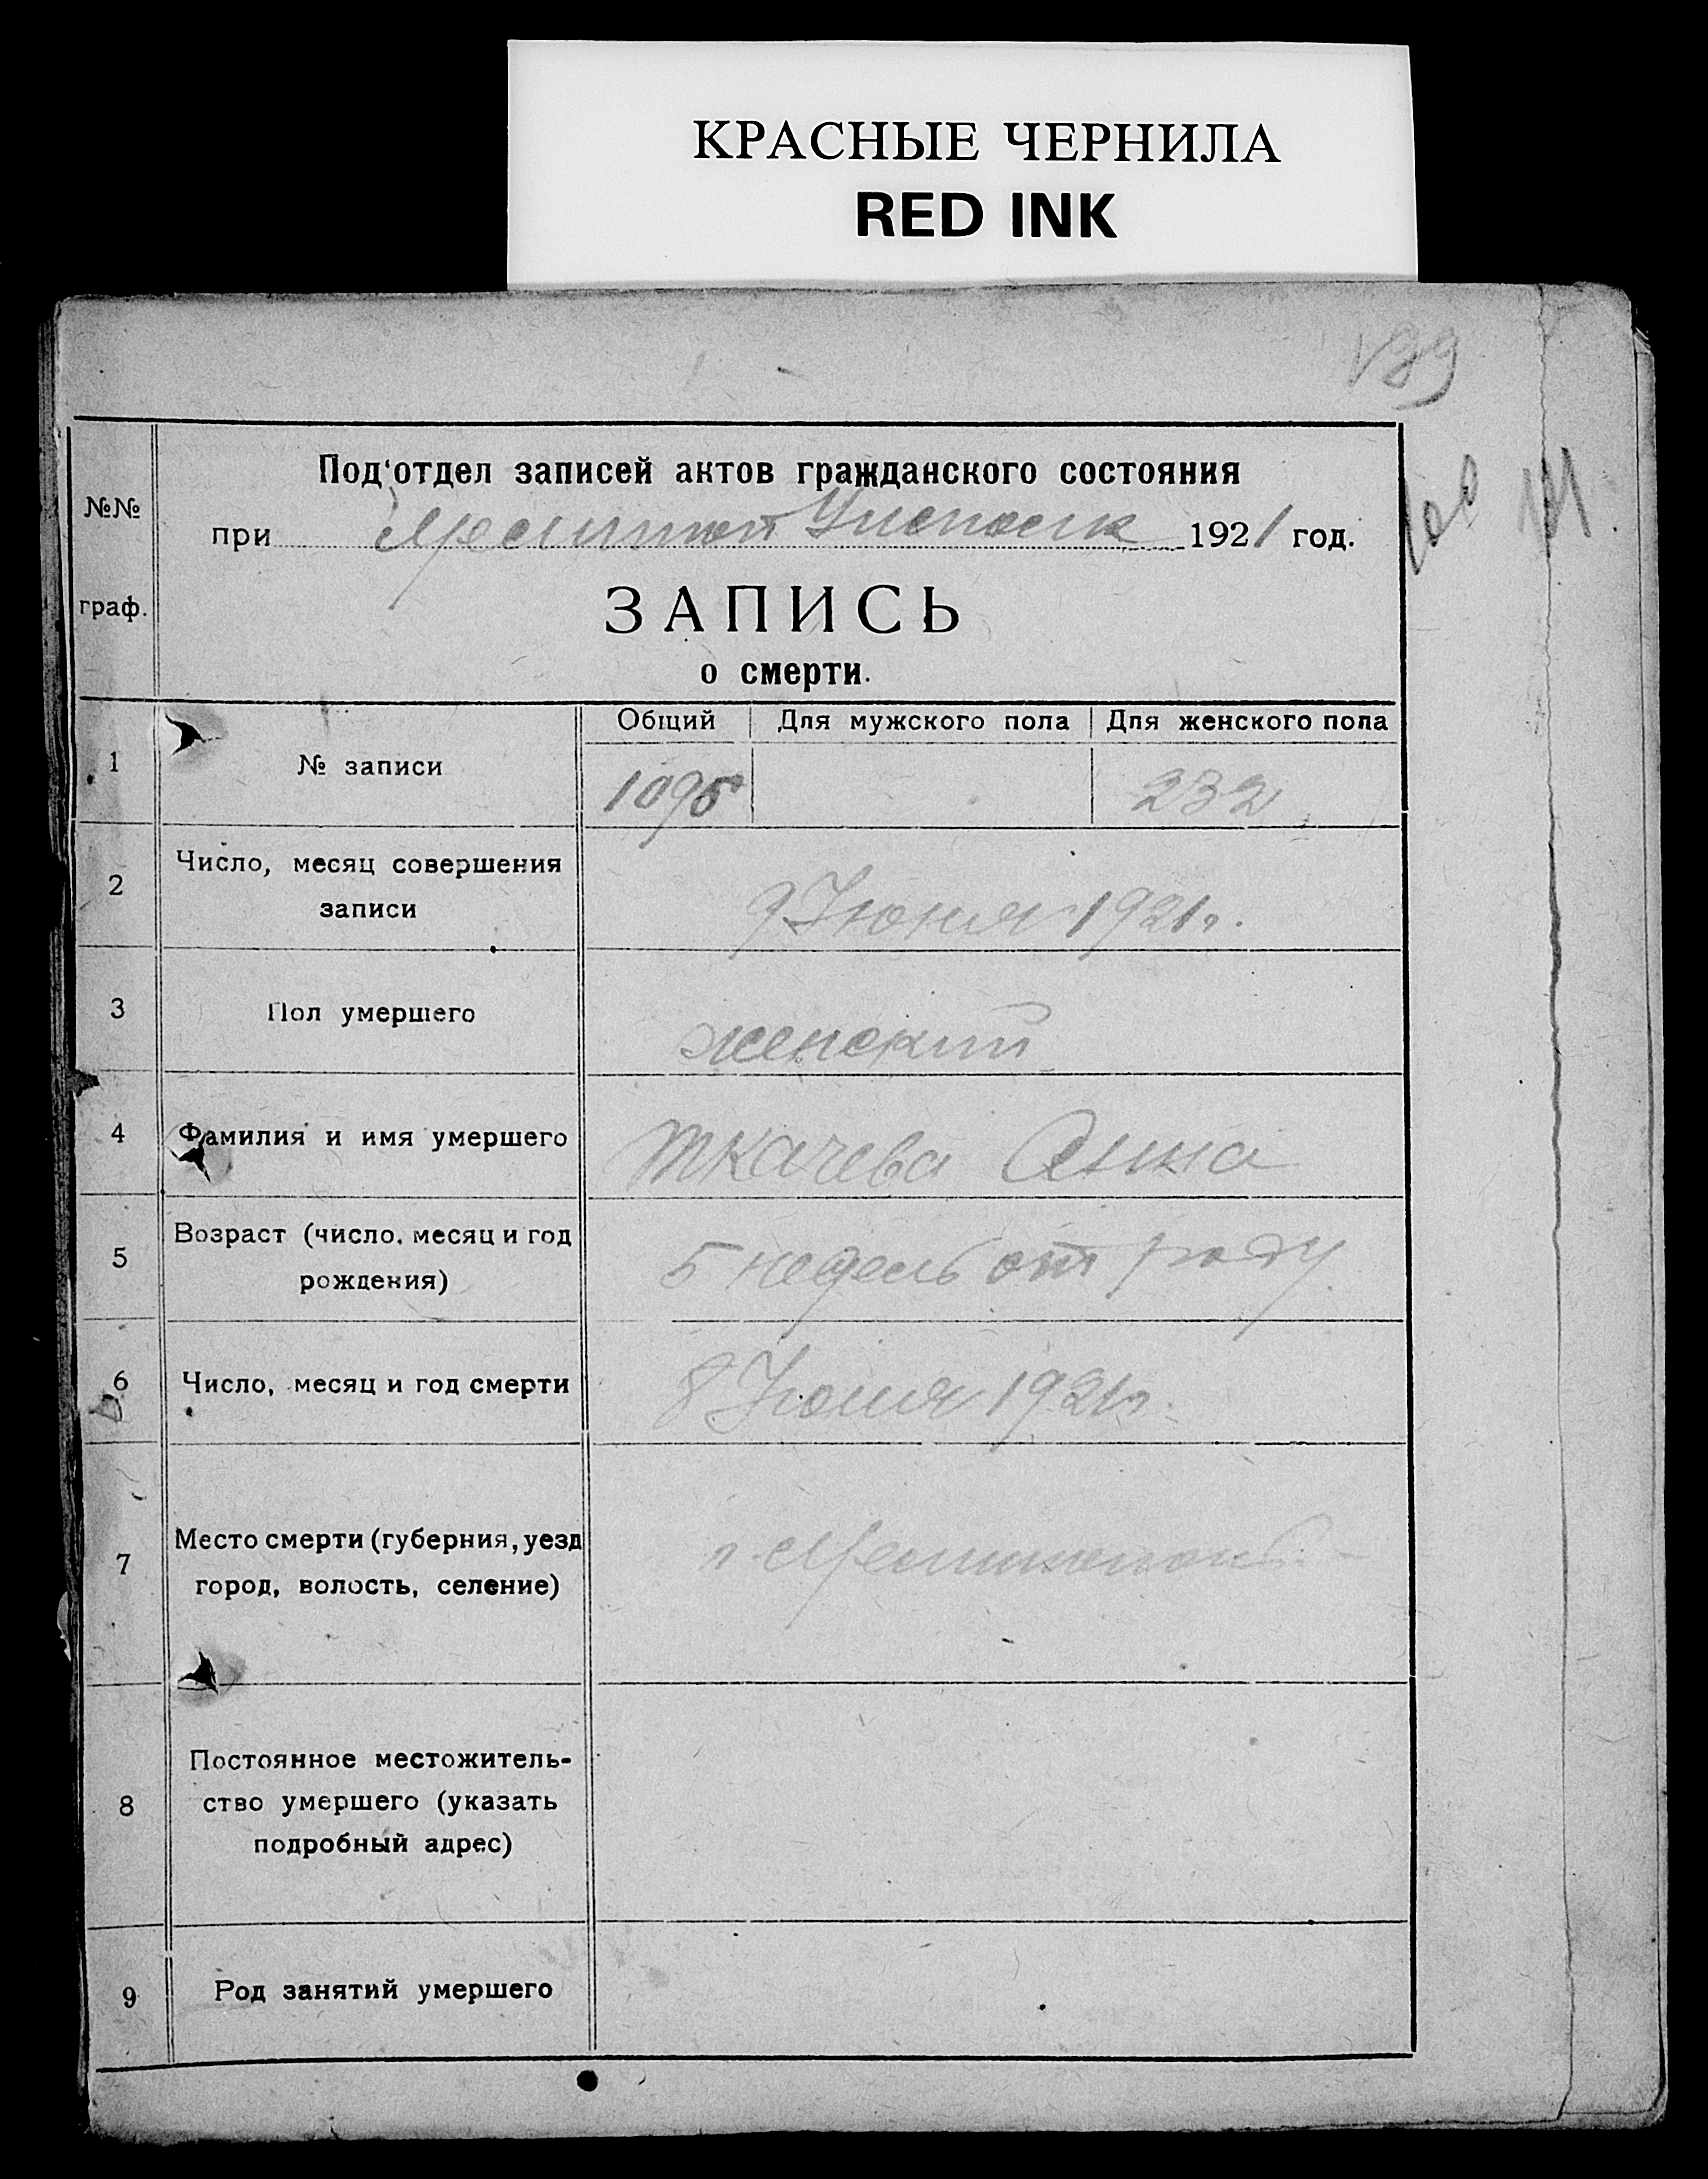 КРАСНЫЕ ЧЕРНИЛА
RED INK
Под‘отдел записей актов гражданского состояния
№№
при 1921 год.
граф.
ЗАПИСЬ
о смерти.
Общий Для мужского пола Для женского пола
1 № записи
1095 232
2 Число, месяц совершения
записи
9 Июня 1921 г.
3 Пол умершего
женский
4 Фамилия и имя умершего Ткачева Анна
5 Возраст (число, месяц и год
рождения)
5 недель от роду
6 Число, месяц и год смерти 8 Июня 1921 г.
7 Место смерти (губерния, уезд
город, волость, селение)
8 Постоянное местожитель-
ство умершего (указать
подробный адрес)
9 Род занятий умершего